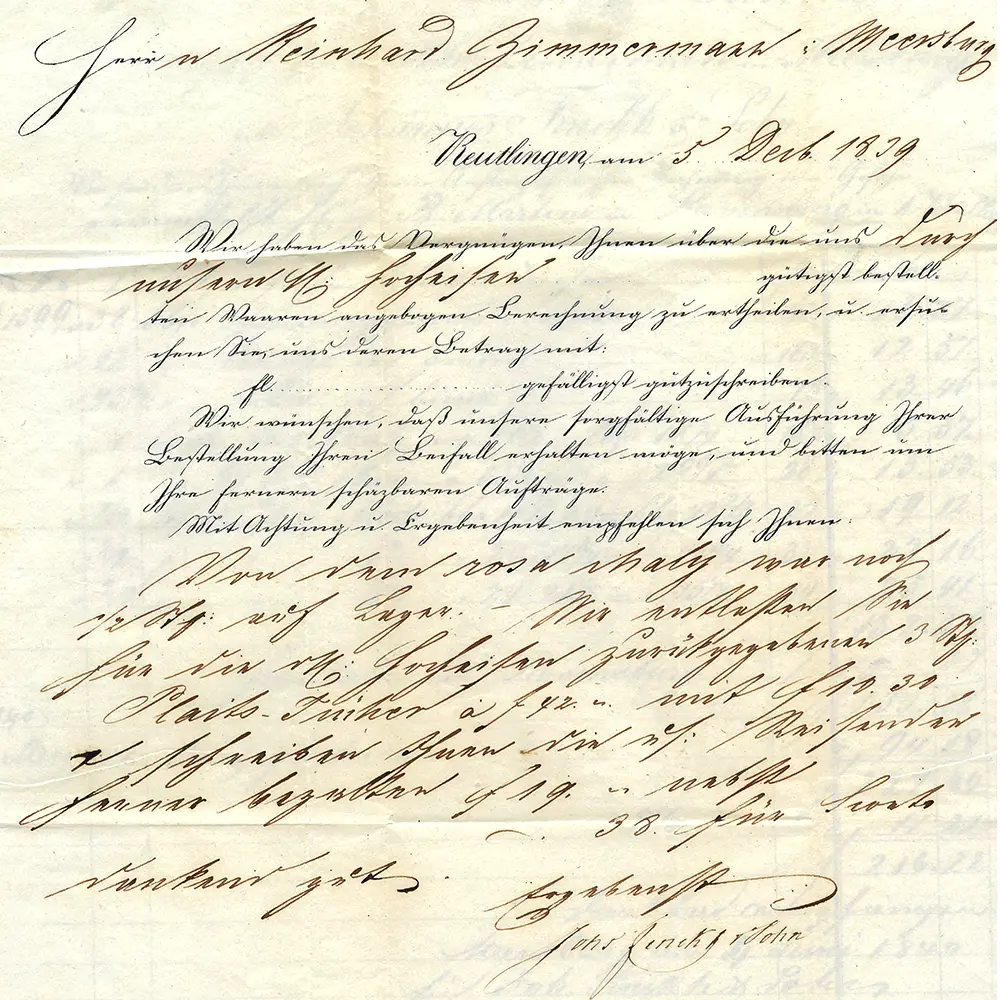 Herrn Reinhard Zimmermann i Meersburg
Reutlingen, am 5 Decb. 1839
Wir haben das Vergnügen, Ihnen über die uns durch
unsern H: Hocheisen gütigst bestell-
ten Waaren angebogen Berechnung zu ertheilen, u. ersu-
chen Sie, uns deren Betrag mit:
fl. gefälligst gutzuschreiben.
Wir wünschen, daß unsere sorgfältige Ausführung Ihrer
Bestellung Ihren Beifall erhalten möge, und bitten um
Ihre fernern schäzbaren Aufträge.
Mit Achtung u. Ergebenheit empfehlen sich Ihnen:
Von dem rosa war noch
1/2 Stk: auf Lager. – Wir entlasten Sie
für die Hocheisen zurükgegebenen 3 Stk:
Plaits-Tücher à f 42. mit f 10. 30.
schreiben Ihnen die Reisenden
ferner bezalten f 19. – nebst
38. für Porto
dankend gut.
Ergebenst
Johs Finckh & Sohn